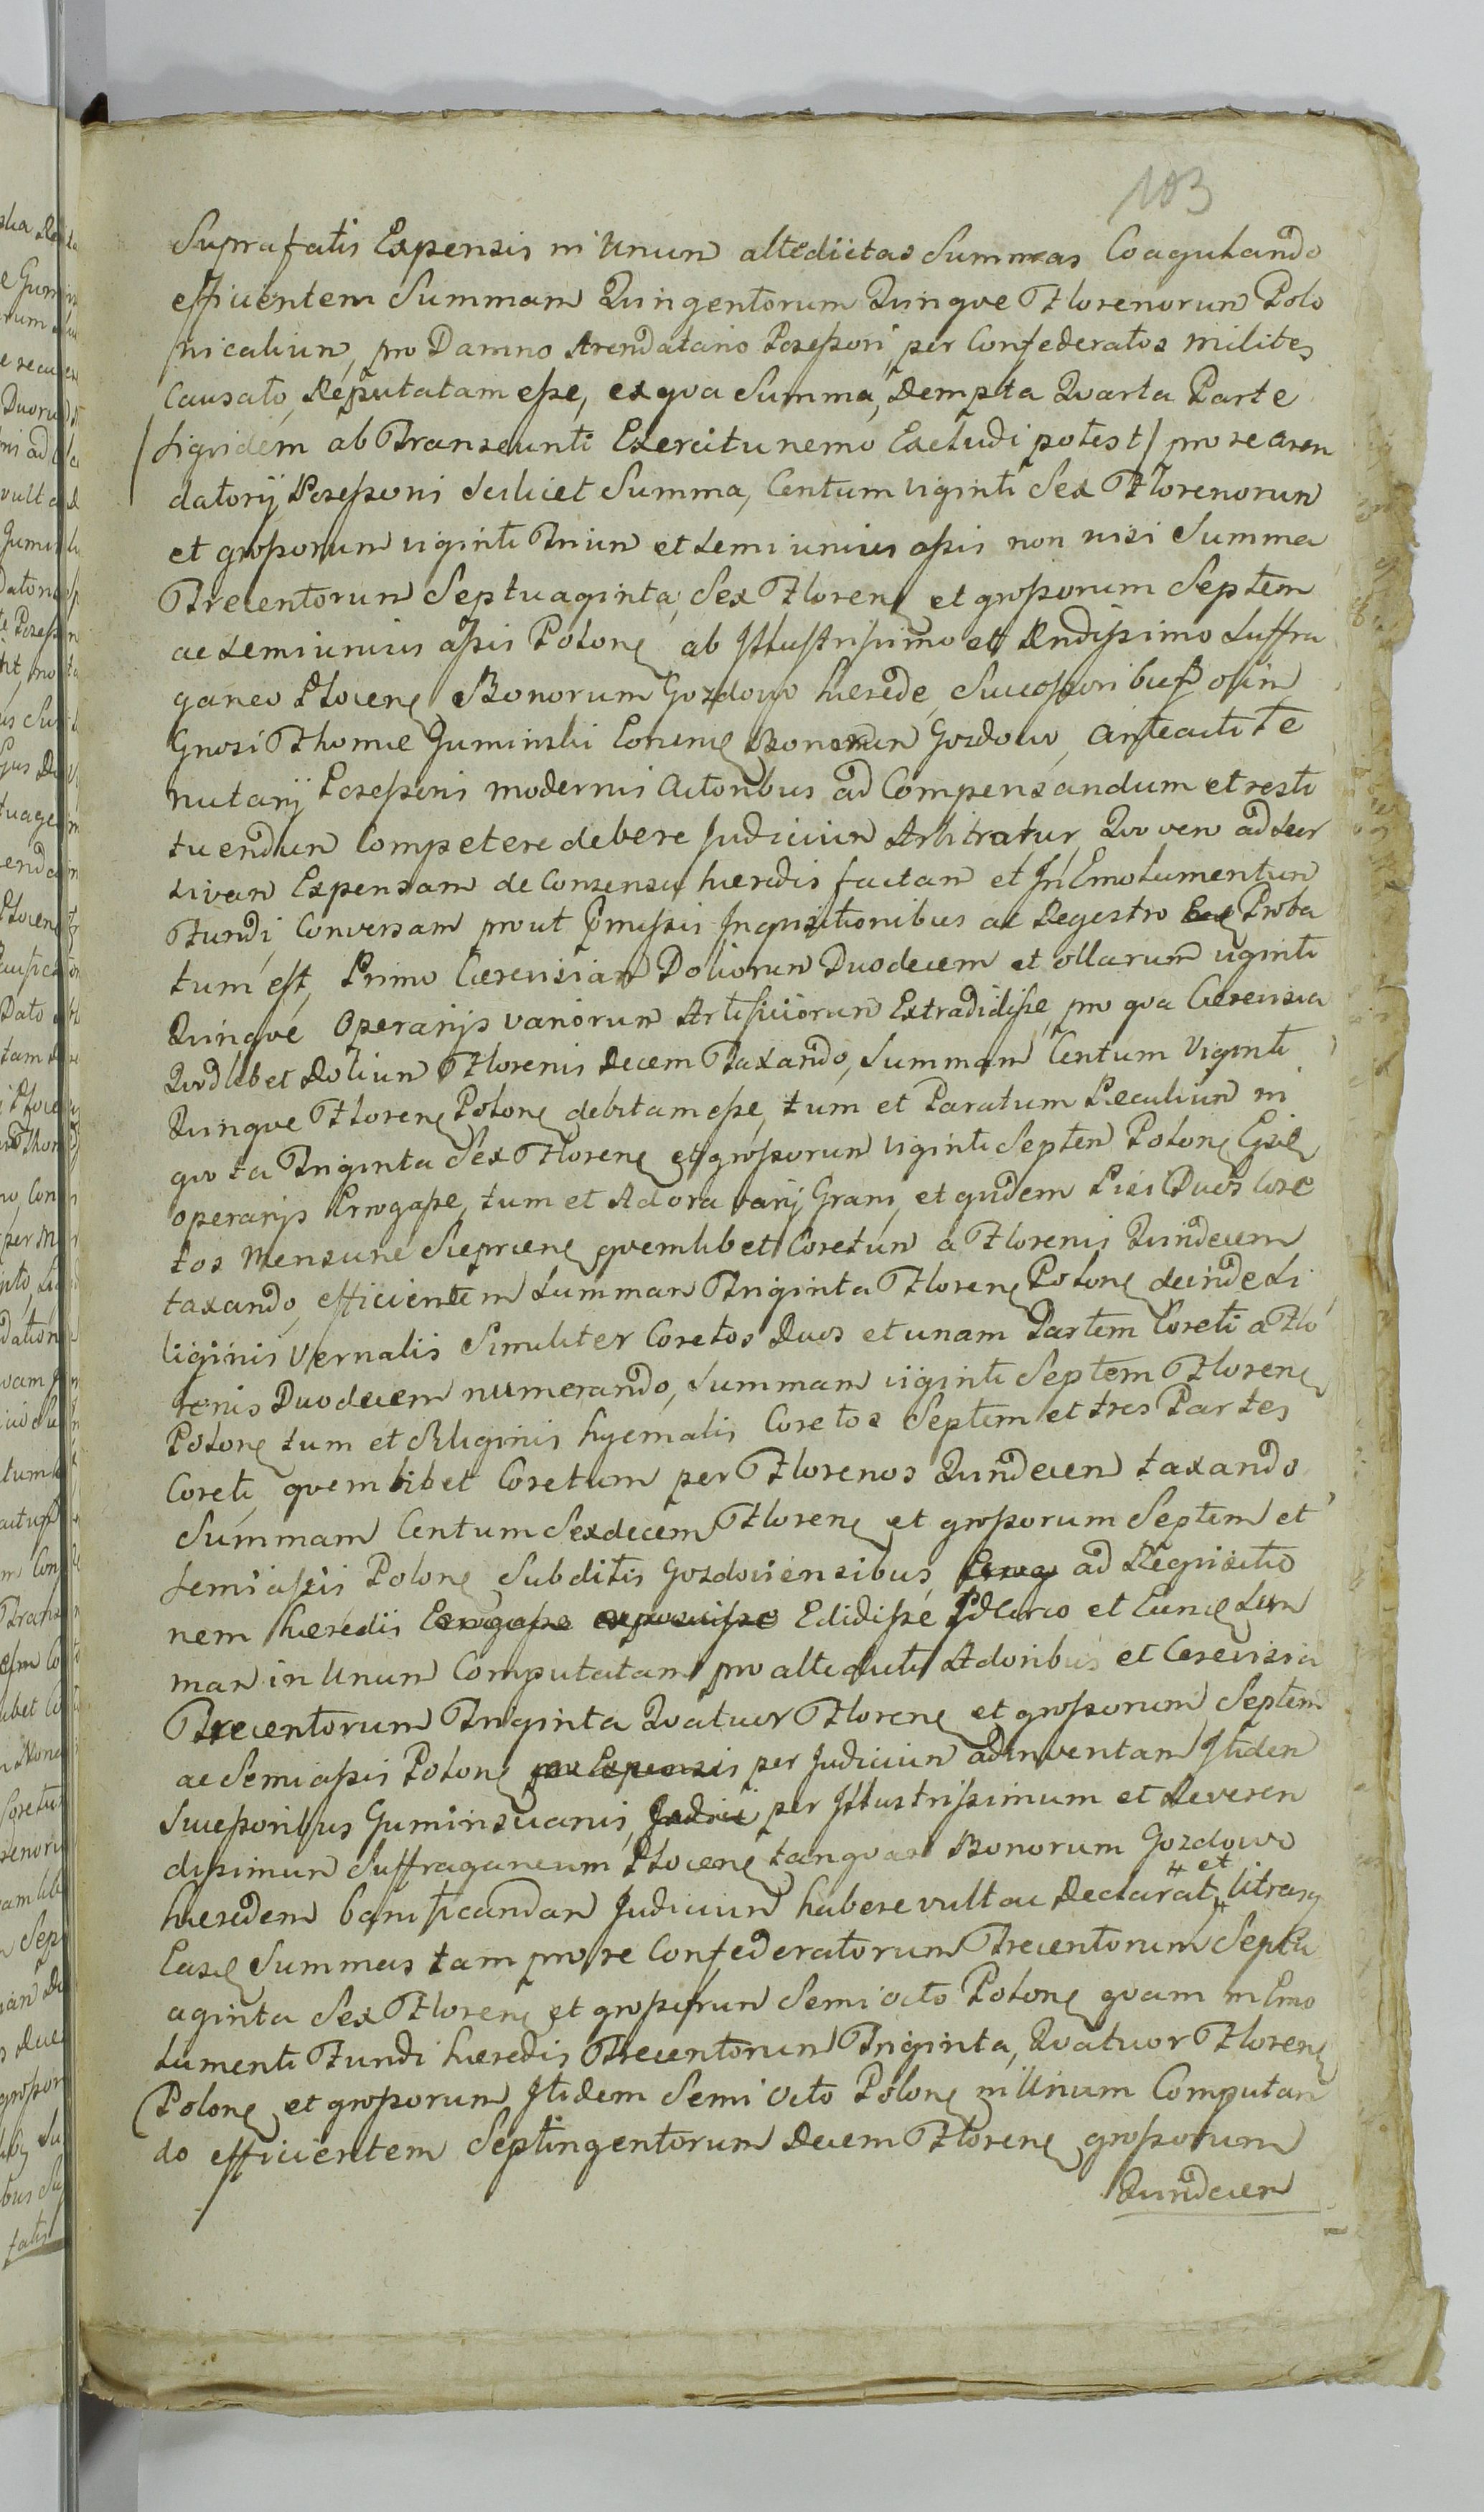 103
Suprafatis Expensis in Unum altedictas Summas Coagulando
efficientem Summam Quingentorum Quinqve Florenorum Polo
nicalium, pro Damno Arendatario Possessori per Confederatos milites
Causato, Reputatam esse, ex qva Summa, Dempta Qvarta Parte
/siqvidem ab Transeunti Exercitu nemo Excludi potest/ pro se aren
datorij Possessori scilicet Summa, Centum viginti Sex Florenorum
et grossorum viginti Trium et semi unius assis non nisi Summa
Trecentorum Septuaginta Sex Floren et grossorum Septem
ac semi unius assis Polon ab Illustrissimo et Rndissimo Suffra
ganeo Plocen Bonorum Gozdowo hærede, Successoribus olim
Gnosi Thomæ Guminski Bonorum Gozdowo, anteacti te
nutarij Possessoris modernis Actoribus ad Compensandum et resti
tuendum Competere debere Judicium Arbitratur, Qvo vero ad
sivam Expensam de Consensu hæredis factam et In Emolumentum
Fundi Conversam prout pmissis Inqvisitionibus ac Regestro Proba
tum est, Primo Cærevisiam Doliorum Duodecem et ollarum viginti
Quinqve Operarijs variorum Artificiorum Extradidisse, pro qva Cerevisia
Qvodlibet Dolium Florenis Decem Taxando, Summam Centum Viginti
Quinqve Floren Polon debitam esse, tum et Paratum Peculium in
qvota Triginta Sex Floren et grossorum viginti Septem Polon
operarijs Errogasse, tum et Adora varij Grani, et qvidem Pisi Duos Core
tos Mensuræ Sieprcen qvemlibet Coretum a Florenis Quindecem
taxando, efficientem Summam Triginta Floren Polon deinde Si
liginis Vernalis Similiter Coretos Duos et unam Partem Coreti a Flo
renis Duodecem numerando, Summam viginti Septem Floren
Polon tum et Siliginis hyemalis Coretos Septem et tres Partes
Coreti, qvemlibet Coretum per Florenos Quindecem taxando
Summam Centum Sexdecem Floren et grossorum Septem et
semi assis Polon Subditis Gozdoviensibus, ad Reqvisitio
nem hæredis Erogasse Edidisse Sum
mam in Unum Computatam pro altedictis Adoribus et Cerevisia
Trecentorum Triginta Qvatuor Floren et grossorum Septem
ac Semi assis Polon pro Expensis per Judicium adinventam Itidem
Successoribus Guminscianis, Judicii per Illustrissimum et Reveren
dissimum Suffraganeum Plocen tanqvam Bonorum Gozdowo
hæredem bonificandam Judicium habere vult ac Declarat, et
Summas tam pro re Confederatorum Trecentorum Septu
aginta Sex Floren et grossorum Semi octo Polon qvam in Emo
lumenti Fundi hæredis Trecentorum Triginta, Qvatuor Floren
Polon et grossorum Itidem Semi octo Polon in Unum Computan
do efficientem Septingentorum Decem Floren grossorum
Quindecem